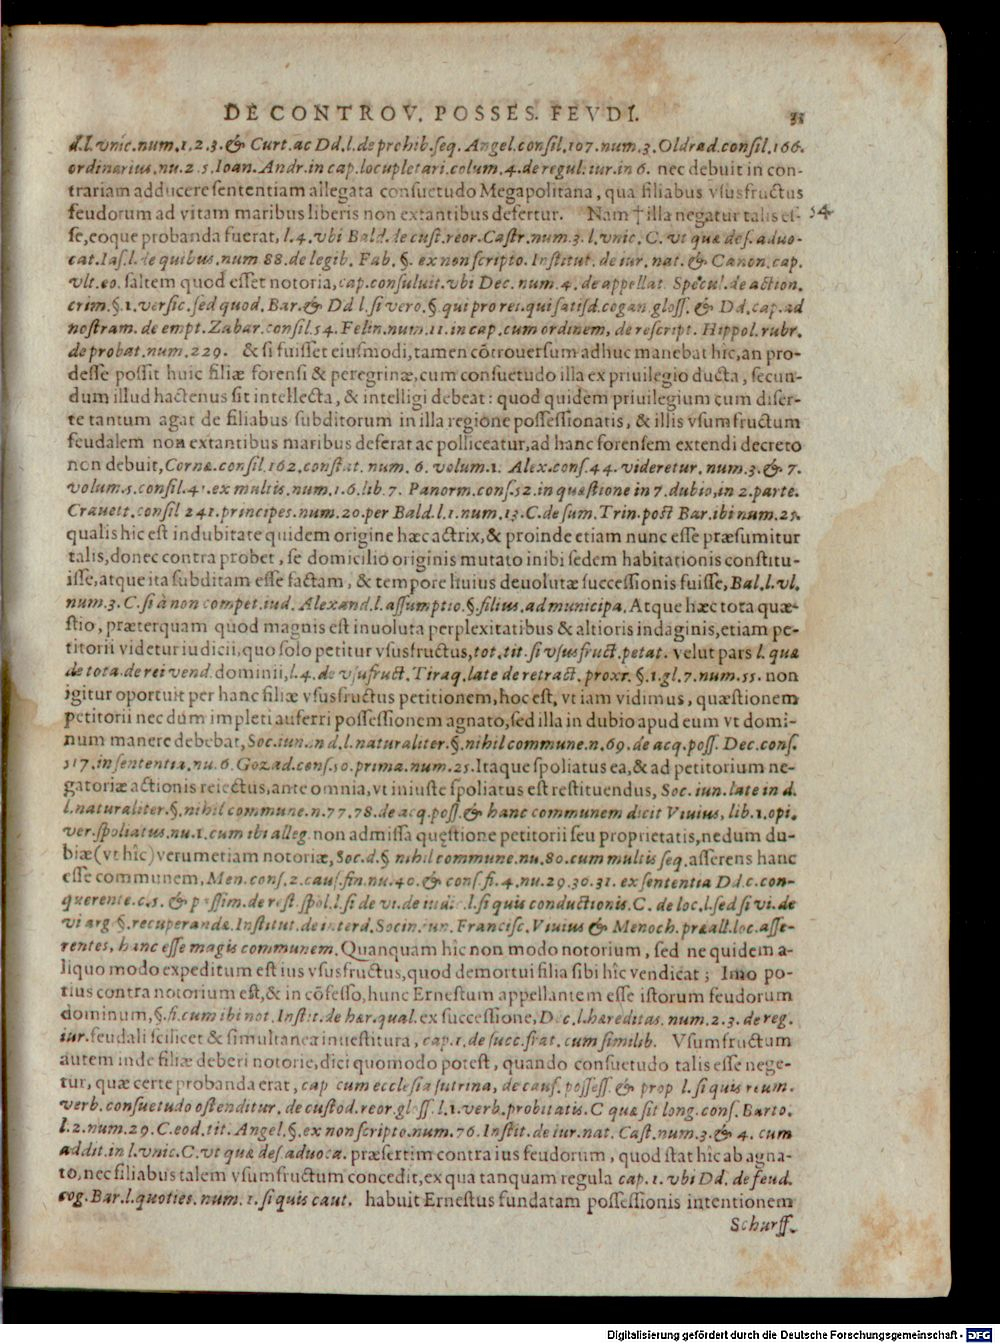 DE CONTROV. POSSES. FEVDI. 33
d.l.vnic.num.1.2.3.& Curt.ac Dd.l.de prohib.seq. Angel.consil.107.num.3.Oldrad.consil.166.
ordinarius.nu.2.5.Ioan.Andr.in cap.locupletari.colum.4.de regul.iur.in 6. nec debuit in con-
trariam adducere sententiam allegata consuetudo Megapolitana, qua filiabus vsusfructus
feudorum ad vitam maribus liberis non extantibus defertur. Nam † illa negatur talis es- 34
se,eoque probanda fuerat, l.4.vbi Bald.de cust.reor.Castr.num.3.l.vnic.C.vt quæ des.aduo-
cat.Ias.l.de quibus.num 88.de legib. Fab. §. ex non scripto. Institut. de iur. nat. & Canon.cap.
vlt.eo. saltem quod esset notoria, cap.consuluit.vbi Dec. num. 4. de appellat. Specul.de action.
crim.§.1.versic.sed quod. Bar.& Dd l.si vero.§.qui pro rei.qui satisd.cogan.gloss. & Dd.cap.ad
nostram. de empt. Zabar.consil.54. Felin.num.11.in cap.cum ordinem, de rescript. Hippol.rubr.
de probat.num.229. & si fuisset eiusmodi, tamen cõtrouersum adhuc manebat hîc,an pro-
desse possit huic filiæ forensi & peregrinæ,cum consuetudo illa ex priuilegio ducta, secun-
dum illud hactenus sit intellecta, & intelligi debeat: quod quidem priuilegium cum diser-
te tantum agat de filiabus subditorum in illa regione possessionatis, & illis vsumfructum
feudalem non extantibus maribus deferat ac polliceatur,ad hanc forensem extendi decreto
non debuit, Cornæ.consil.162.constat. num. 6. volum.1. Alex.cons.44.videretur. num.3.& 7.
volum.5.consil.41.ex multis.num.1.6.lib.7. Panorm.cons.52.in quæstione in 7.dubio,in 2.parte.
Crauett.consil 241.principes.num.20.per Bald.l.1.num.13.C.de sum.Trin.post Bar.ibi num.25.
qualis hîc est indubitate quidem origine hæc actrix,& proinde etiam nunc esse præsumitur
talis, donec contra probet, se domicilio originis mutato inibi sedem habitationis constitu-
isse,atque ita subditam esse factam, & tempore huius deuolutæ successionis fuisse, Bal.l.vl.
num.3. C. si à non compet.iud. Alexand.l.assumptio.§.filius.ad municipa. Atque hæc tota quæ-
stio, præterquam quod magnis est inuoluta perplexitatibus & altioris indaginis, etiam pe-
titorii videtur iudicii, quo solo petitur vsusfructus, tot.tit.si vsusfruct.petat. velut pars l. quæ
de tota.de rei vend. dominii, l.4. de vsufruct. Tiraq.late de retract. proxr. §.1.gl.7.num.55. non
igitur oportuit per hanc filiæ vsusfructus petitionem,hoc est, vt iam vidimus, quæstionem
petitorii nec dum impleti auferri possessionem agnato, sed illa in dubio apud eum vt domi-
num manere debebat, Soc.iun.in d.l.naturaliter.§.nihil commune.n.69.de acq.poss. Dec.cons.
317.in sententia.nu.6. Gozad.cons.50.prima.num.25. Itaque spoliatus ea,& ad petitorium ne-
gatoriæ actionis reiectus, ante omnia, vt iniuste spoliatus est restituendus, Soc. iun.late in d.
l.naturaliter.§.nihil commune.n.77.78.de acq.poss.& hanc communem dicit Viuius, lib.1.opi.
ver.spoliatus.nu.1.cum ibi alleg. non admissa quęstione petitorii seu proprietatis,nedum du-
biæ(vt hîc)verumetiam notoriæ, Soc.d.§ nihil commune.nu.80.cum multis seq. asserens hanc
esse communem, Men.cons.2.caus.fin.nu.40.& cons.fi.4.nu.29.30.31. ex sententia Dd.c.con-
querente.c.5. & passim.de rest.spol.l.si de vi.de iudic.l.si quis conductionis.C. de loc.l.sed si vi.de
vi arg §.recuperandæ.Institut.de interd.Socin.iun. Francisc. Viuius & Menoch.præall.loc.asse-
rentes, hanc esse magis communem. Quanquam hîc non modo notorium, sed ne quidem a-
liquo modo expeditum est ius vsusfructus,quod demortui filia sibi hîc vendicat; Imo po-
tius contra notorium est,& in cõfesso, hunc Ernestum appellantem esse istorum feudorum
dominum, §.fi.cum ibi not. Instit.de hær.qual. ex successione, Dec.l.hæreditas.num.2.3.de reg.
iur. feudali scilicet & simultanea inuestitura, cap.1.de succ.frat. cum similib. Vsumfructum
autem inde filiæ deberi notorie,dici quomodo potest, quando consuetudo talis esse nege-
tur, quæ certe probanda erat, cap cum ecclesia sutrina, de caus. possess. & prop l.si quis reum.
verb. consuetudo ostenditur. de custod.reor.gloss.l.1.verb.probitatis.C quæ sit long.cons. Barto.
l.2.num.29.C.eod.tit. Angel.§.ex non scripto.num.76.Instit.de iur.nat. Cast.num.3.& 4. cum
addit.in l.vnic.C.vt quæ des.aduoca. præsertim contra ius feudorum, quod stat hîc ab agna-
to, nec filiabus talem vsumfructum concedit, ex qua tanquam regula cap.1. vbi Dd. de feud.
cog. Bar.l.quoties.num.1.si quis caut. habuit Ernestus fundatam possessionis intentionem
Schurff.
Digitalisierung gefördert durch die Deutsche Forschungsgemeinschaft - DFG